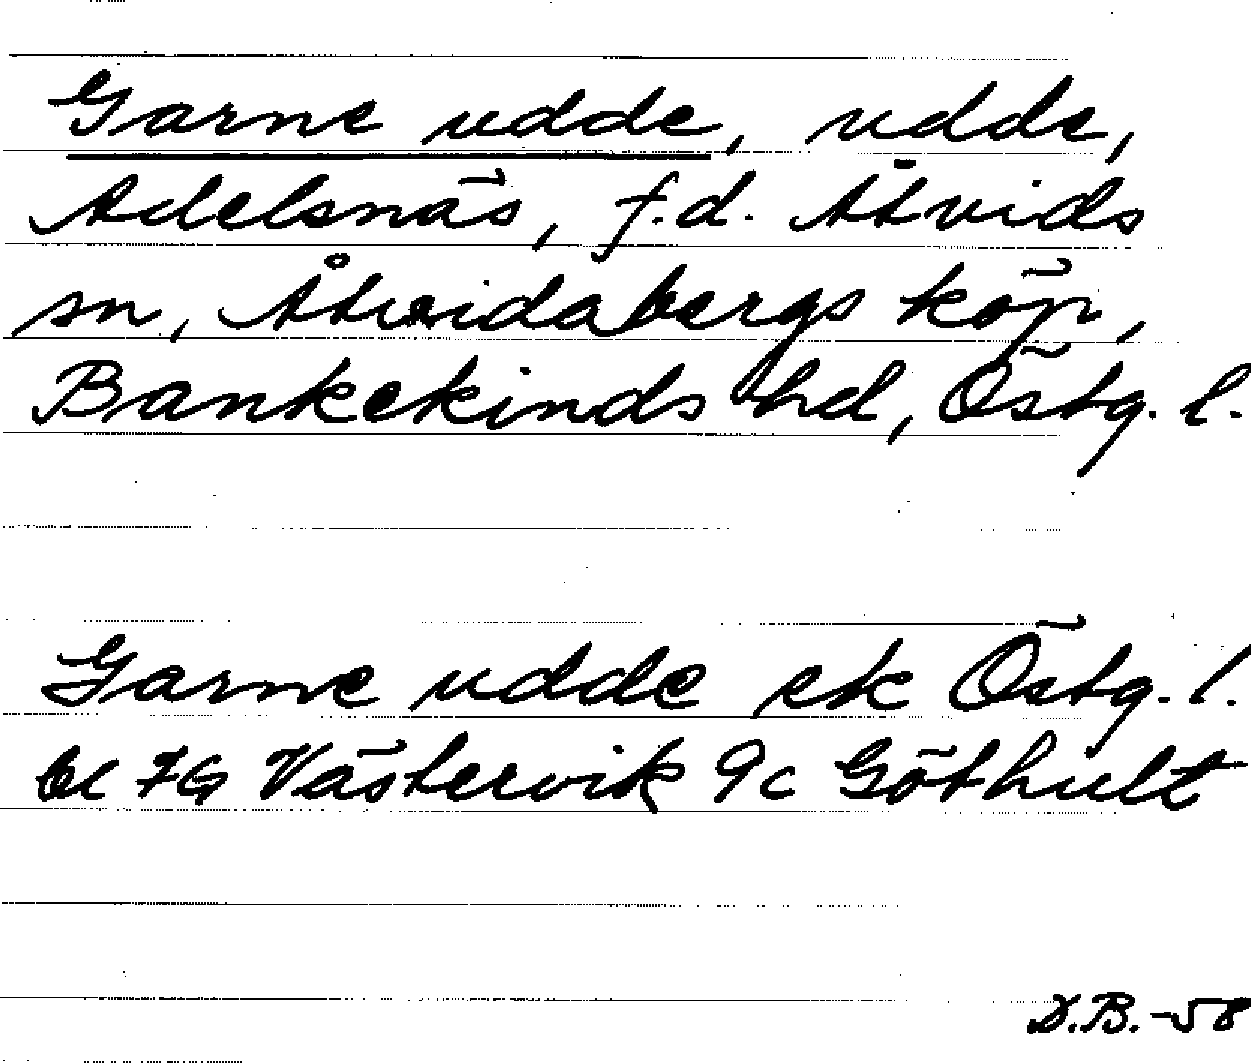 Garne udde, udde,
Adelsnäs, f.d. Åtvids
sn, Åtvidabergs köp,
Bankekinds hd, Östg. l.
Garne udde ek Östg. l.
bl 7G Västervik 9c Göthult
D.B.-58